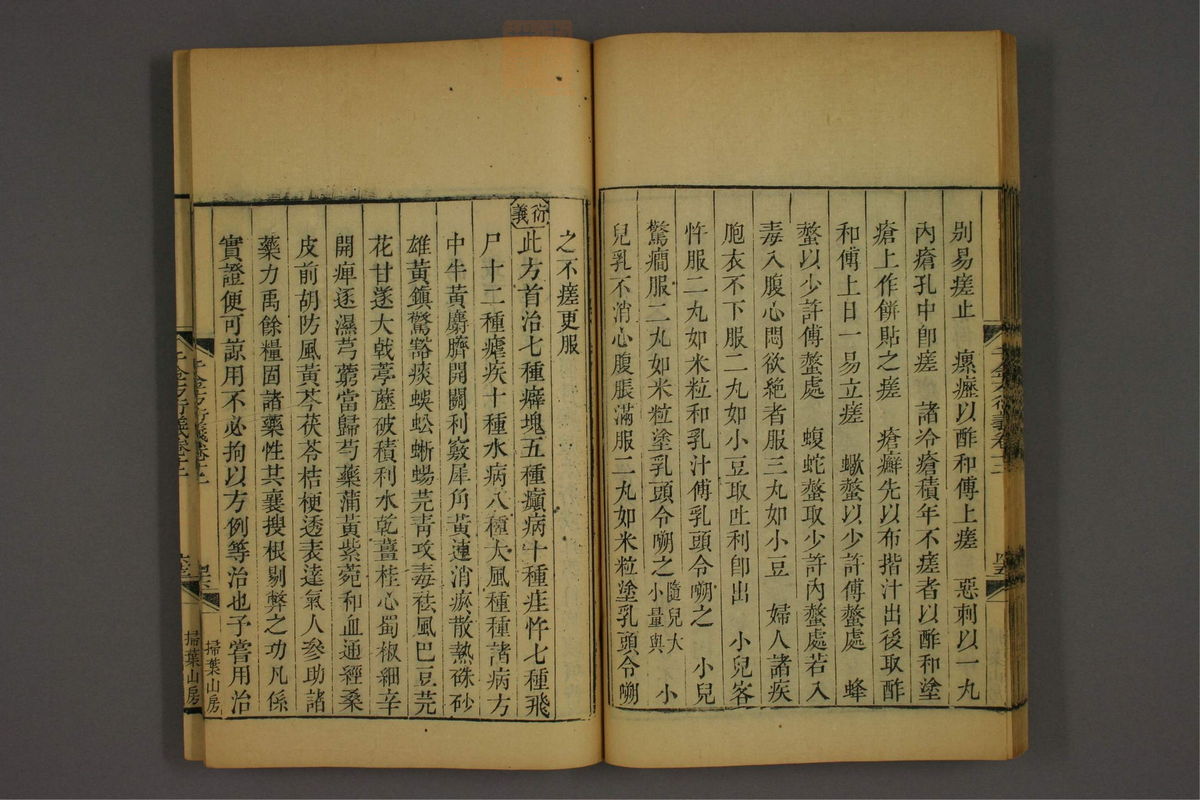 別易瘥止　瘰癧以酢和傅上瘥　惡刺以一丸
內瘡孔中卽瘥　諸冷瘡積年不瘥者以酢和塗
瘡上作餅貼之瘥　瘡癬先以布揩汁出後取酢
和傅上日一易立瘥　蠍螫以少許傅螫處　蜂
螫以少許傅螫處　蝮蛇螫取少許內螫處若入
毒入腹心悶欲絶者服三丸如小豆　婦人諸疾
胞衣不下服二丸如小豆取吐利卽出　小兒客
忤服二丸如米粒和乳汁傅乳頭令嗍之　小兒
驚癇服二丸如米粒塗乳頭令嗍之隨兒大小量與　小
兒乳不消心腹脹滿服二丸如米粒塗乳頭令嗍
之不瘥更服
衍義此方首治七種癖塊五種癲病十種疰忤七種飛
尸十二種瘧疾十種水病八種大風種種諸病方
中牛黃麝臍開關利竅犀角黃連消瘀散熱硃砂
雄黃鎮驚豁痰蜈蚣蜥蜴芫青攻毒祛風巴豆芫
花甘遂大戟葶藶破積利水乾薑桂心蜀椒細辛
開痺逐濕芎藭當歸芍藥蒲黃紫菀和血通經桑
皮前胡防風黃芩茯苓桔梗透表達氣人參助諸
藥力禹餘糧固諸藥性共襄搜根剔弊之功凡係
實證便可諒用不必拘以方例等治也予嘗用治
千金方衍義卷十二
掃葉山房
掃葉山房